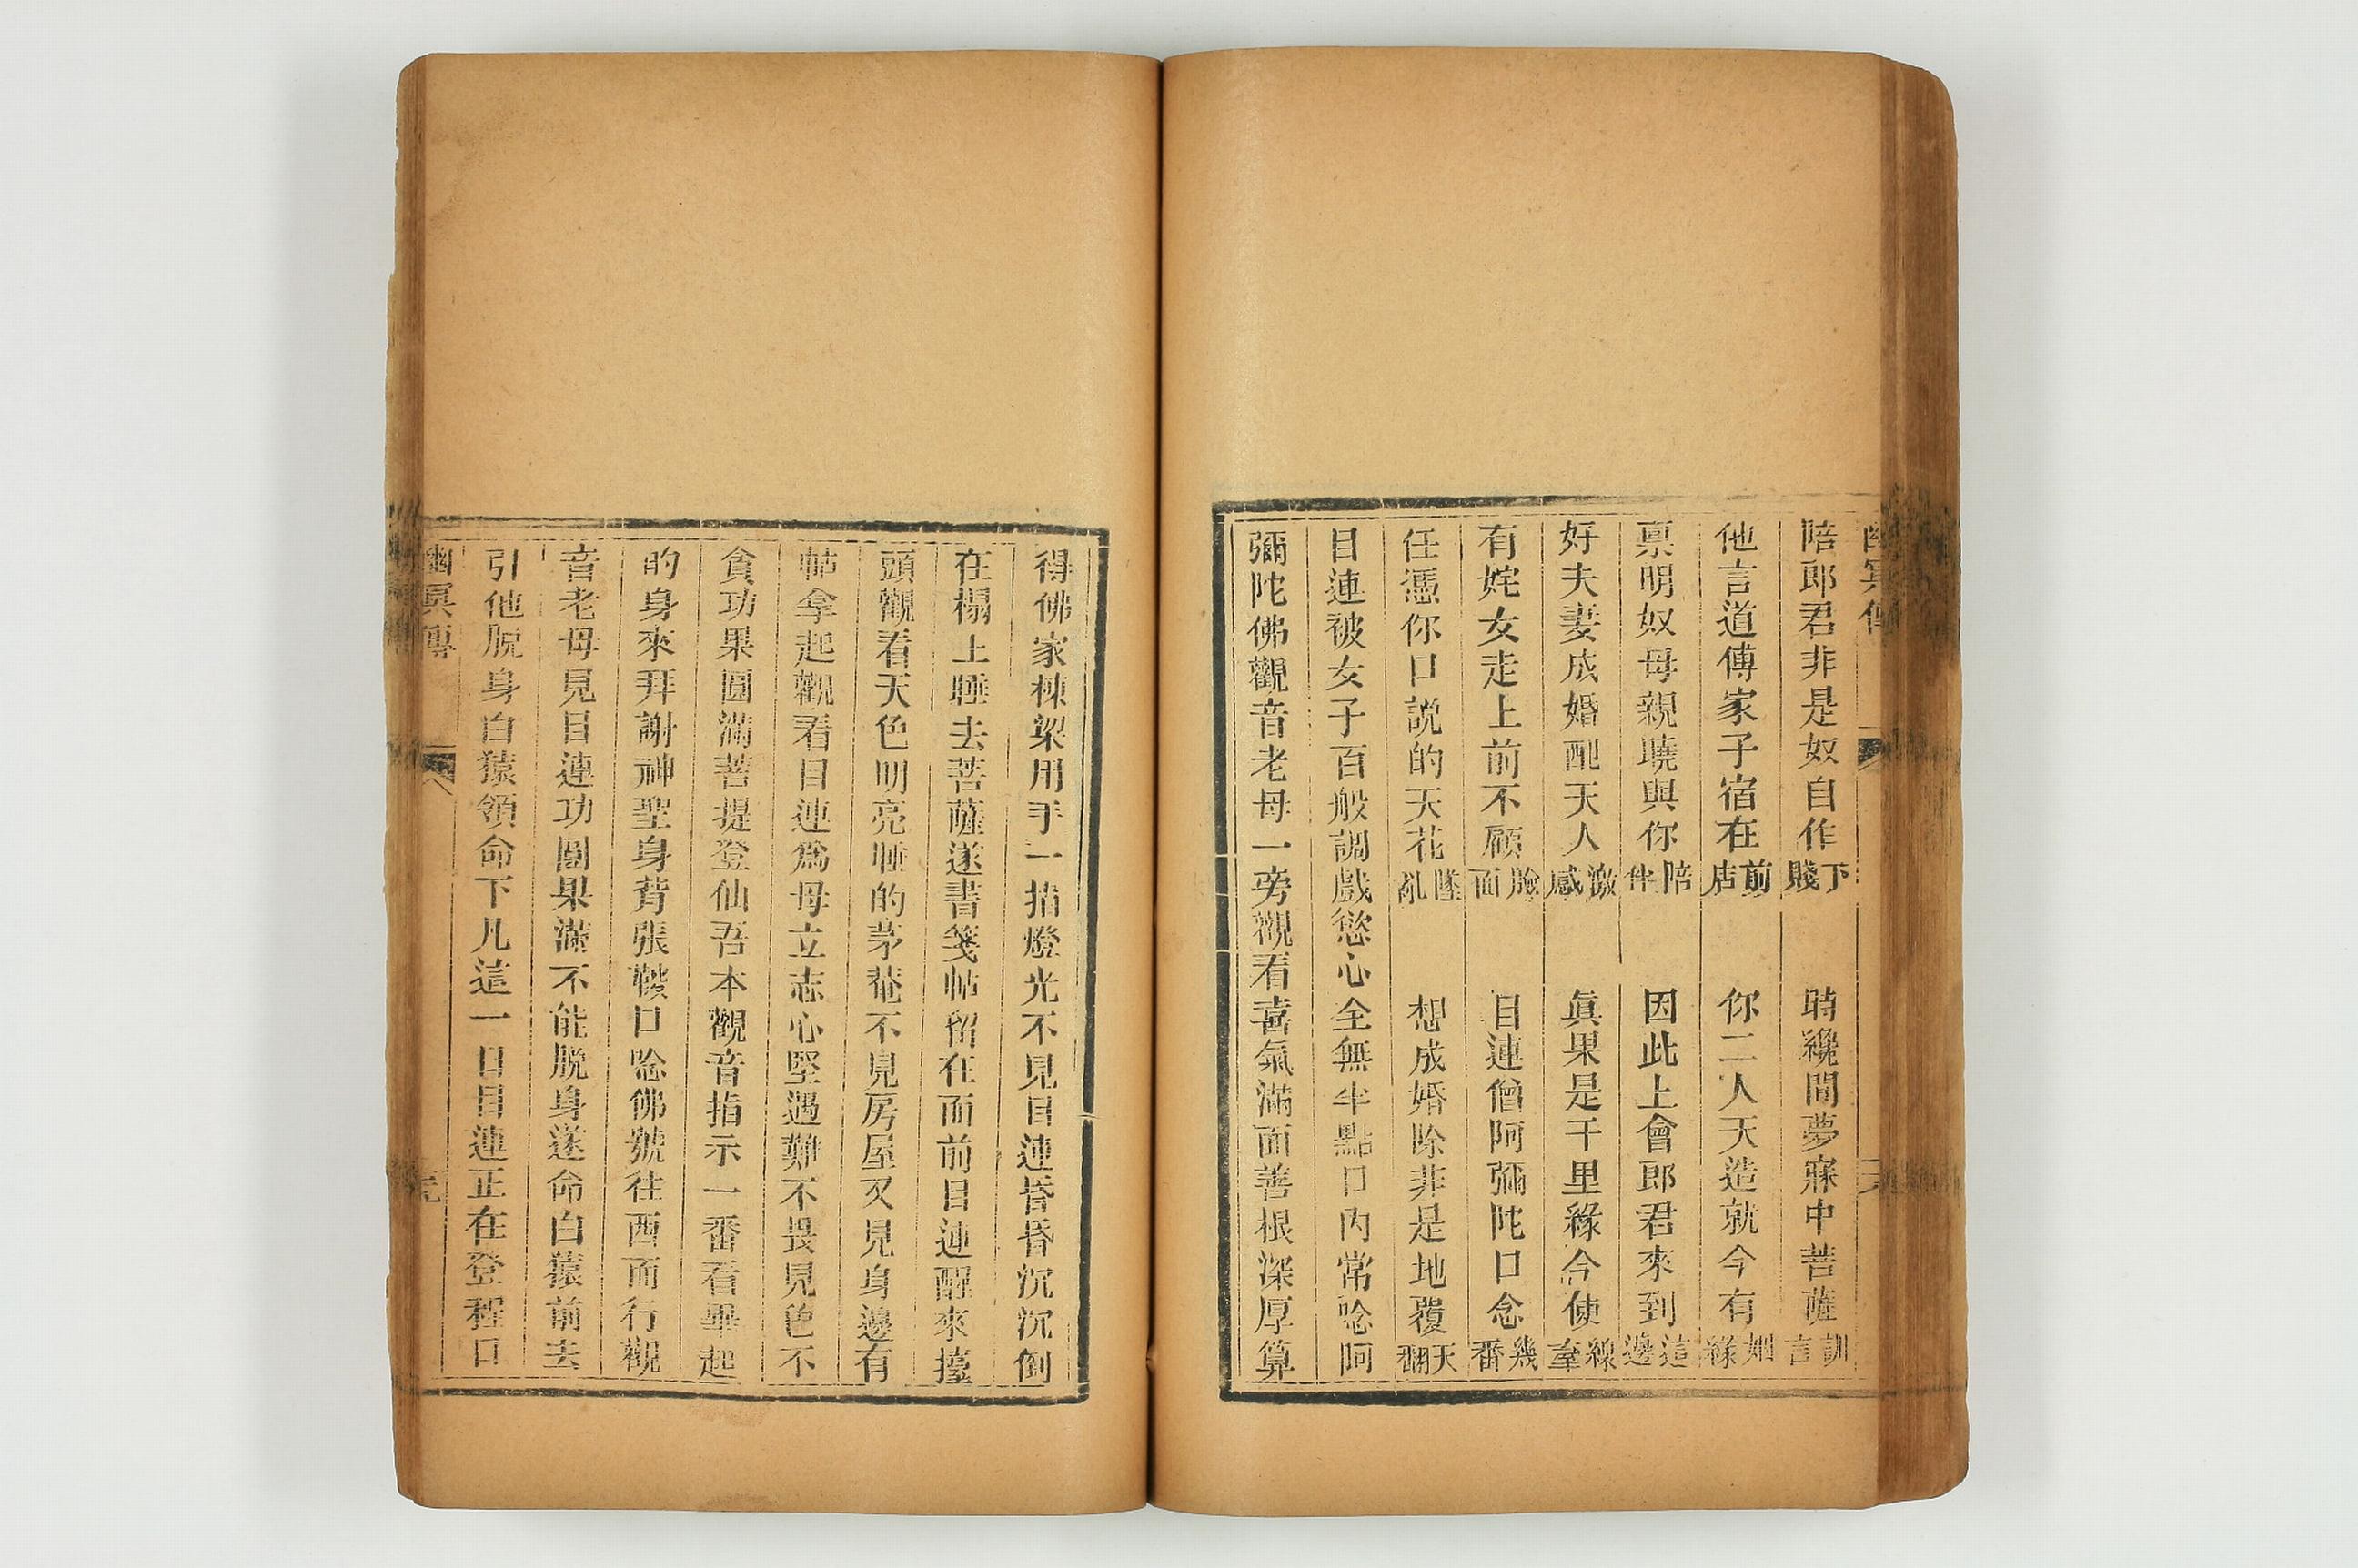 陪郎君非是奴自作下賤　時纔間夢寐中菩薩訓言
他言道傅家子宿在前店　你二人天造就今有姻緣
稟明奴母親曉與你陪伴　因此上會郎君來到這邊
好夫妻成婚配天人激感　眞果是千里緣今使線牽
有姹女走上前不顧臉面　目連僧阿彌陀口念幾番
任憑你口説的天花墜亂　想成婚除非是地覆天翻
目連被女子百般調戲慾心全無半點口内常唸阿
彌陀佛觀音老母一旁觀看喜氣滿面善根深厚算
得佛家棟梁用手一指燈光不見目連昏昏沉沉倒
在榻上睡去菩薩遂書箋帖留在面前目連醒來擡
頭觀看天色明亮睡的茅菴不見房屋又見身邊有
帖拿起觀看目連爲母立志心堅遇難不畏見色不
貪功果圓滿菩提登仙吾本觀音指示一番看畢起
的身來拜謝神聖身背張鞍口唸佛號往西而行觀
音老母見目連功圓果滿不能脱身遂命白猿前去
引他脱身白猿領命下凡這一日目連正在登程口
幽冥傳